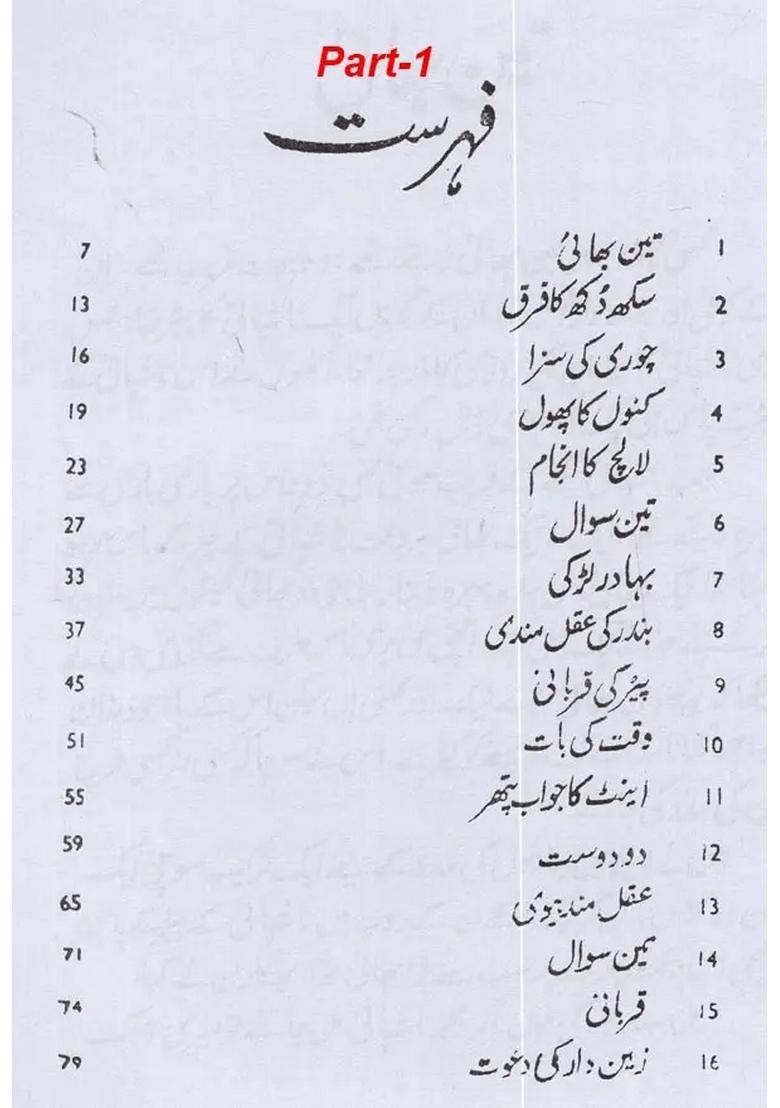 Part-1
فہرست
1 تین بھائی 7
2 سکھ دُکھ کا فرق 13
3 چوری کی سزا 16
4 کنول کا پھول 19
5 لالچ کا انجام 23
6 تین سوال 27
7 بہادر لڑکی 33
8 بندر کی عقل مندی 37
9 پیڑ کی قربانی 45
10 وقت کی بات 51
11 اینٹ کا جواب پتھر 55
12 دو دوست 59
13 عقل مند بیوی 65
14 تین سوال 71
15 قربانی 74
16 زمین دار کی دعوت 79